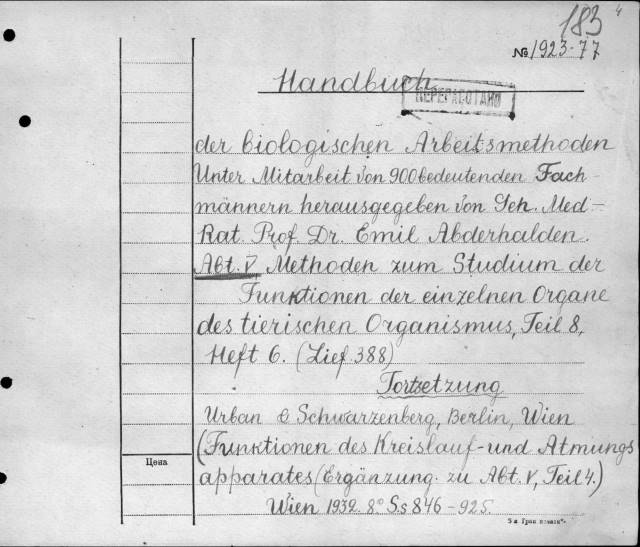 4
183
№ 1923-77
Handbuch
ПЕРЕРАБОТАНО
der biologischen Arbeitsmethoden
Unter Mitarbeit von 900 bedeutenden Fach-
männern herausgegeben von Geh. Med-
Rat. Prof. Dr. Emil Abderhalden.
Abt. V Methoden zum Studium der
Funktionen der einzelnen Organe
des tierischen Organismus, Teil 8,
Heft 6. (Lief. 388)
Fortsetzung
Urban & Schwarzenberg, Berlin, Wien
(Funktionen des Kreislauf- und Atmungs
apparates (Ergänzung zu Abt. V, Teil 4.)
Цена
Wien 1932. 8° Ss 846-925.